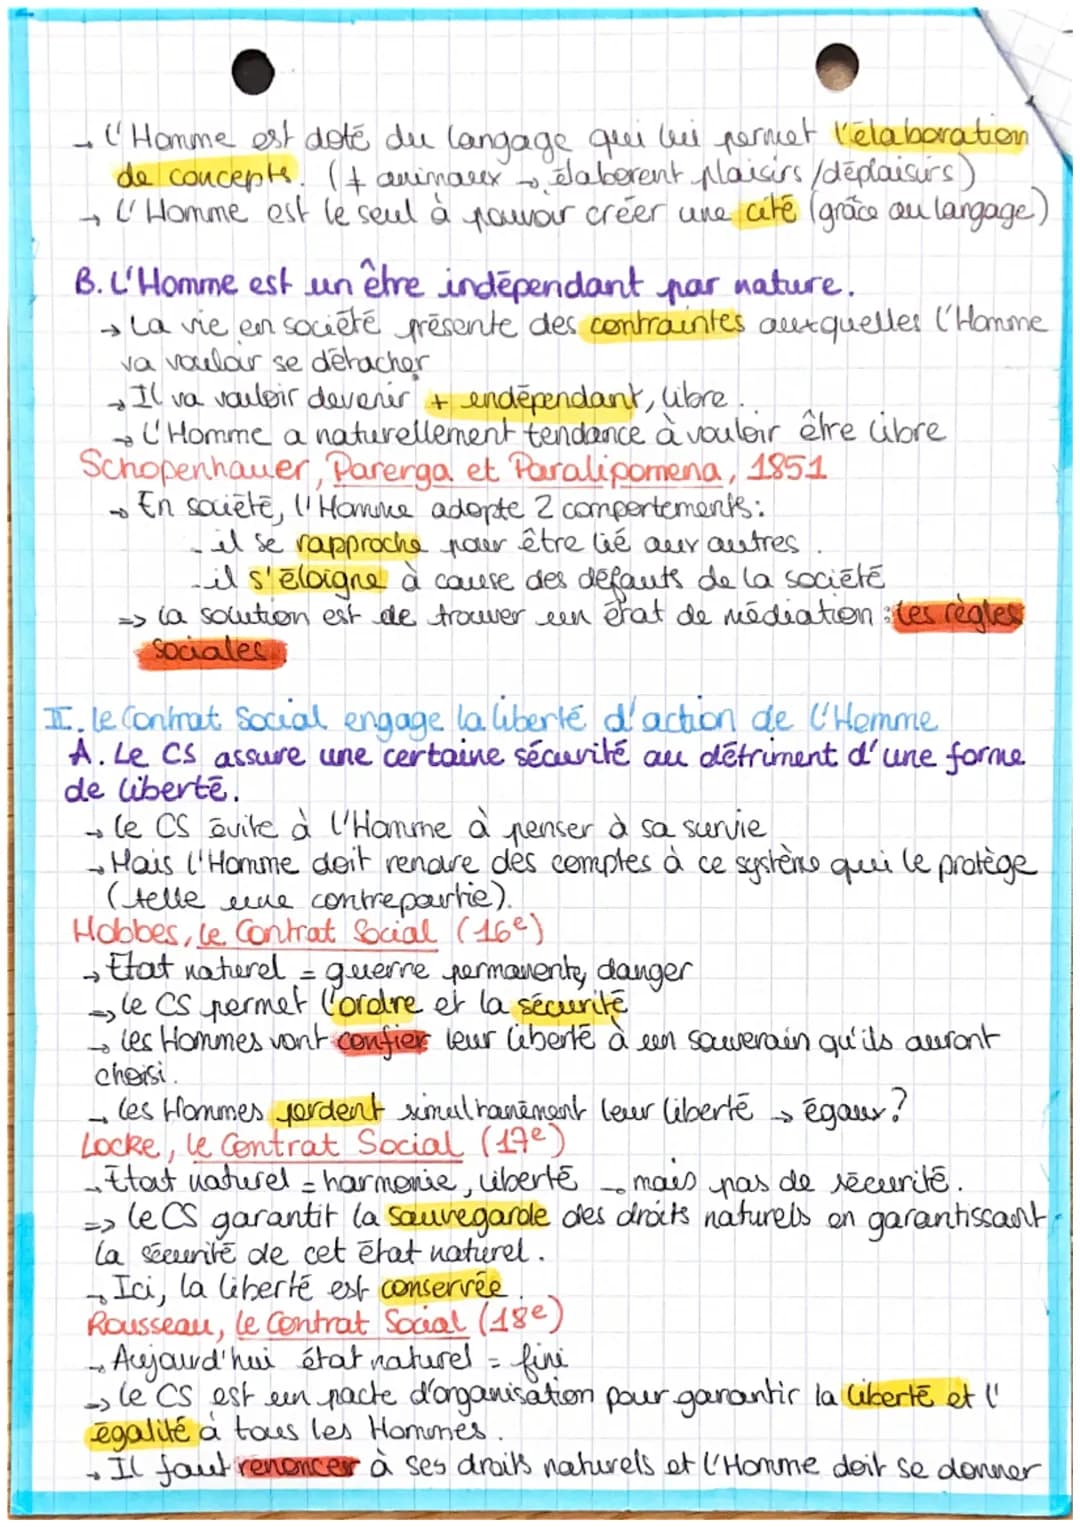 → L'Homme est doté du langage qui lui permet l'élaboration
de concepts. (≠ animaux → élaborent plaisirs/déplaisirs)
→ L'Homme est le seul à pouvoir créer une cité (grâce au langage)
B. L'Homme est un être indépendant par nature.
→ La vie en société présente des contraintes auxquelles l'Homme
va vouloir se détacher
→ Il va vouloir devenir + indépendant, libre.
→ L'Homme a naturellement tendance à vouloir être libre
Schopenhauer, Parerga et Paralipomena, 1851
→ En société, l'Homme adopte 2 comportements:
- il se rapproche pour être lié aux autres.
- il s'éloigne à cause des défauts de la société
=> la solution est de trouver un état de médiation : les règles
sociales.
II. Le Contrat Social engage la liberté d'action de l'Homme
A. Le CS assure une certaine sécurité au détriment d'une forme
de liberté.
→ Le CS évite à l'Homme à penser à sa survie
→ Mais l'Homme doit rendre des comptes à ce système qui le protège
(telle une contrepartie).
Hobbes, Le Contrat Social (16e)
→ Etat naturel = guerre permanente, danger
=> Le CS permet l'ordre et la sécurité
→ Les Hommes vont confier leur liberté à un souverain qu'ils auront
choisi.
→ Les Hommes perdent simultanément leur liberté → égaux?
Locke, Le Contrat Social (17e)
→ Etat naturel = harmonie, liberté → mais pas de sécurité.
=> Le CS garantit la sauvegarde des droits naturels en garantissant
la sécurité de cet état naturel.
→ Ici, la liberté est conservée.
Rousseau, Le Contrat Social (18e)
→ Aujourd'hui état naturel = fini
=> Le CS est un pacte d'organisation pour garantir la liberté et l'
égalité à tous les Hommes.
→ Il faut renoncer à ses droits naturels et l'Homme doit se donner